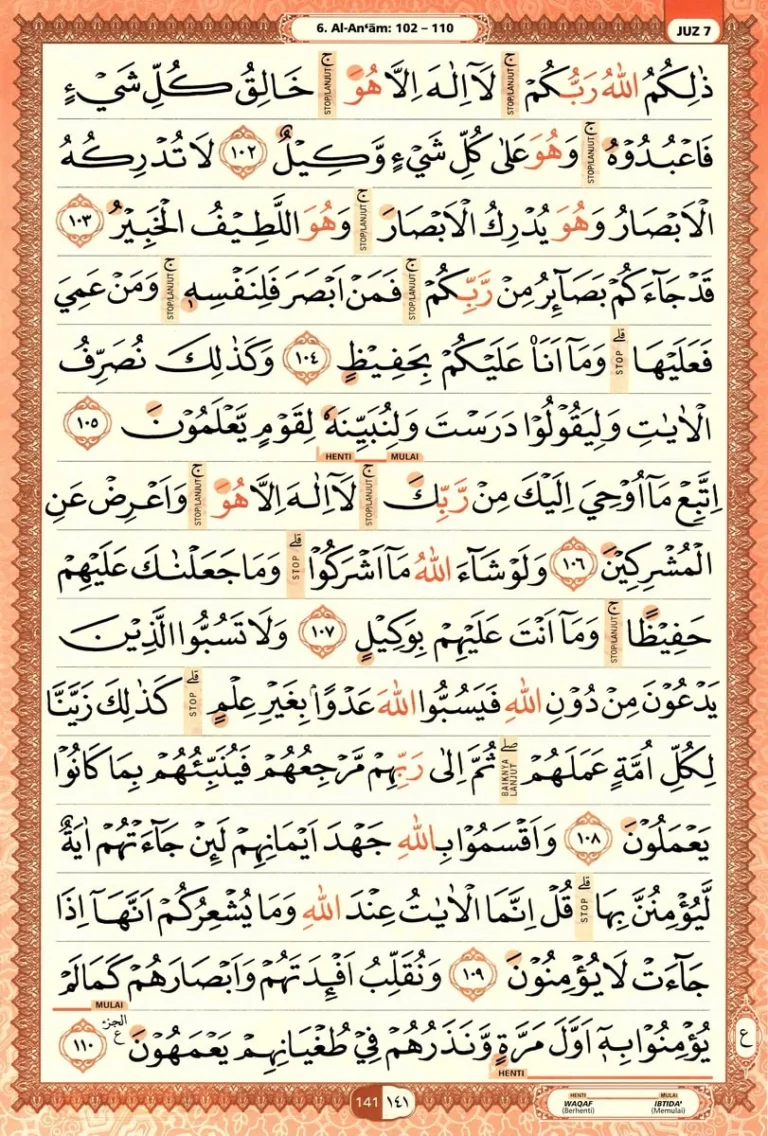 6. Al-An‘ām: 102 – 110
JUZ 7
ذٰلِكُمُ اللّٰهُ رَبُّكُمْ ۚ STOP/LANJUT لَآ اِلٰهَ اِلَّا هُوَ ۚ STOP/LANJUT خَالِقُ كُلِّ شَيْءٍ
فَاعْبُدُوْهُ ۚ STOP/LANJUT وَهُوَ عَلٰى كُلِّ شَيْءٍ وَّكِيْلٌ ١٠٢ لَا تُدْرِكُهُ
الْاَبْصَارُ وَهُوَ يُدْرِكُ الْاَبْصَارَ ۚ STOP/LANJUT وَهُوَ اللَّطِيْفُ الْخَبِيْرُ ١٠٣
قَدْ جَاۤءَكُمْ بَصَاۤىِٕرُ مِنْ رَّبِّكُمْ ۚ STOP/LANJUT فَمَنْ اَبْصَرَ فَلِنَفْسِهٖ ۚ STOP/LANJUT وَمَنْ عَمِيَ
فَعَلَيْهَا ۗ STOP وَمَآ اَنَا۠ عَلَيْكُمْ بِحَفِيْظٍ ١٠٤ وَكَذٰلِكَ نُصَرِّفُ
الْاٰيٰتِ وَلِيَقُوْلُوْا دَرَسْتَ وَلِنُبَيِّنَهٗ لِقَوْمٍ يَّعْلَمُوْنَ ١٠٥
HENTI MULAI
اِتَّبِعْ مَآ اُوْحِيَ اِلَيْكَ مِنْ رَّبِّكَ ۚ STOP/LANJUT لَآ اِلٰهَ اِلَّا هُوَ ۚ STOP/LANJUT وَاَعْرِضْ عَنِ
الْمُشْرِكِيْنَ ١٠٦ وَلَوْ شَاۤءَ اللّٰهُ مَآ اَشْرَكُوْا ۗ STOP وَمَا جَعَلْنٰكَ عَلَيْهِمْ
حَفِيْظًا ۚ STOP/LANJUT وَمَآ اَنْتَ عَلَيْهِمْ بِوَكِيْلٍ ١٠٧ وَلَا تَسُبُّوا الَّذِيْنَ
يَدْعُوْنَ مِنْ دُوْنِ اللّٰهِ فَيَسُبُّوا اللّٰهَ عَدْوًاۢ بِغَيْرِ عِلْمٍ ۗ STOP كَذٰلِكَ زَيَّنَّا
لِكُلِّ اُمَّةٍ عَمَلَهُمْ ۖ BAIKNYA LANJUT ثُمَّ اِلٰى رَبِّهِمْ مَّرْجِعُهُمْ فَيُنَبِّئُهُمْ بِمَا كَانُوْا
يَعْمَلُوْنَ ١٠٨ وَاَقْسَمُوْا بِاللّٰهِ جَهْدَ اَيْمَانِهِمْ لَىِٕنْ جَاۤءَتْهُمْ اٰيَةٌ
لَّيُؤْمِنُنَّ بِهَا ۗ STOP قُلْ اِنَّمَا الْاٰيٰتُ عِنْدَ اللّٰهِ وَمَا يُشْعِرُكُمْ اَنَّهَآ اِذَا
جَاۤءَتْ لَا يُؤْمِنُوْنَ ١٠٩ وَنُقَلِّبُ اَفْـِٕدَتَهُمْ وَاَبْصَارَهُمْ كَمَا لَمْ
MULAI
يُؤْمِنُوْا بِهٖٓ اَوَّلَ مَرَّةٍ وَّنَذَرُهُمْ فِيْ طُغْيَانِهِمْ يَعْمَهُوْنَ ١١٠ الجزء ع
HENTI
ع
141 ١٤١
HENTI MULAI
WAQAF IBTIDA'
(Berhenti) (Memulai)